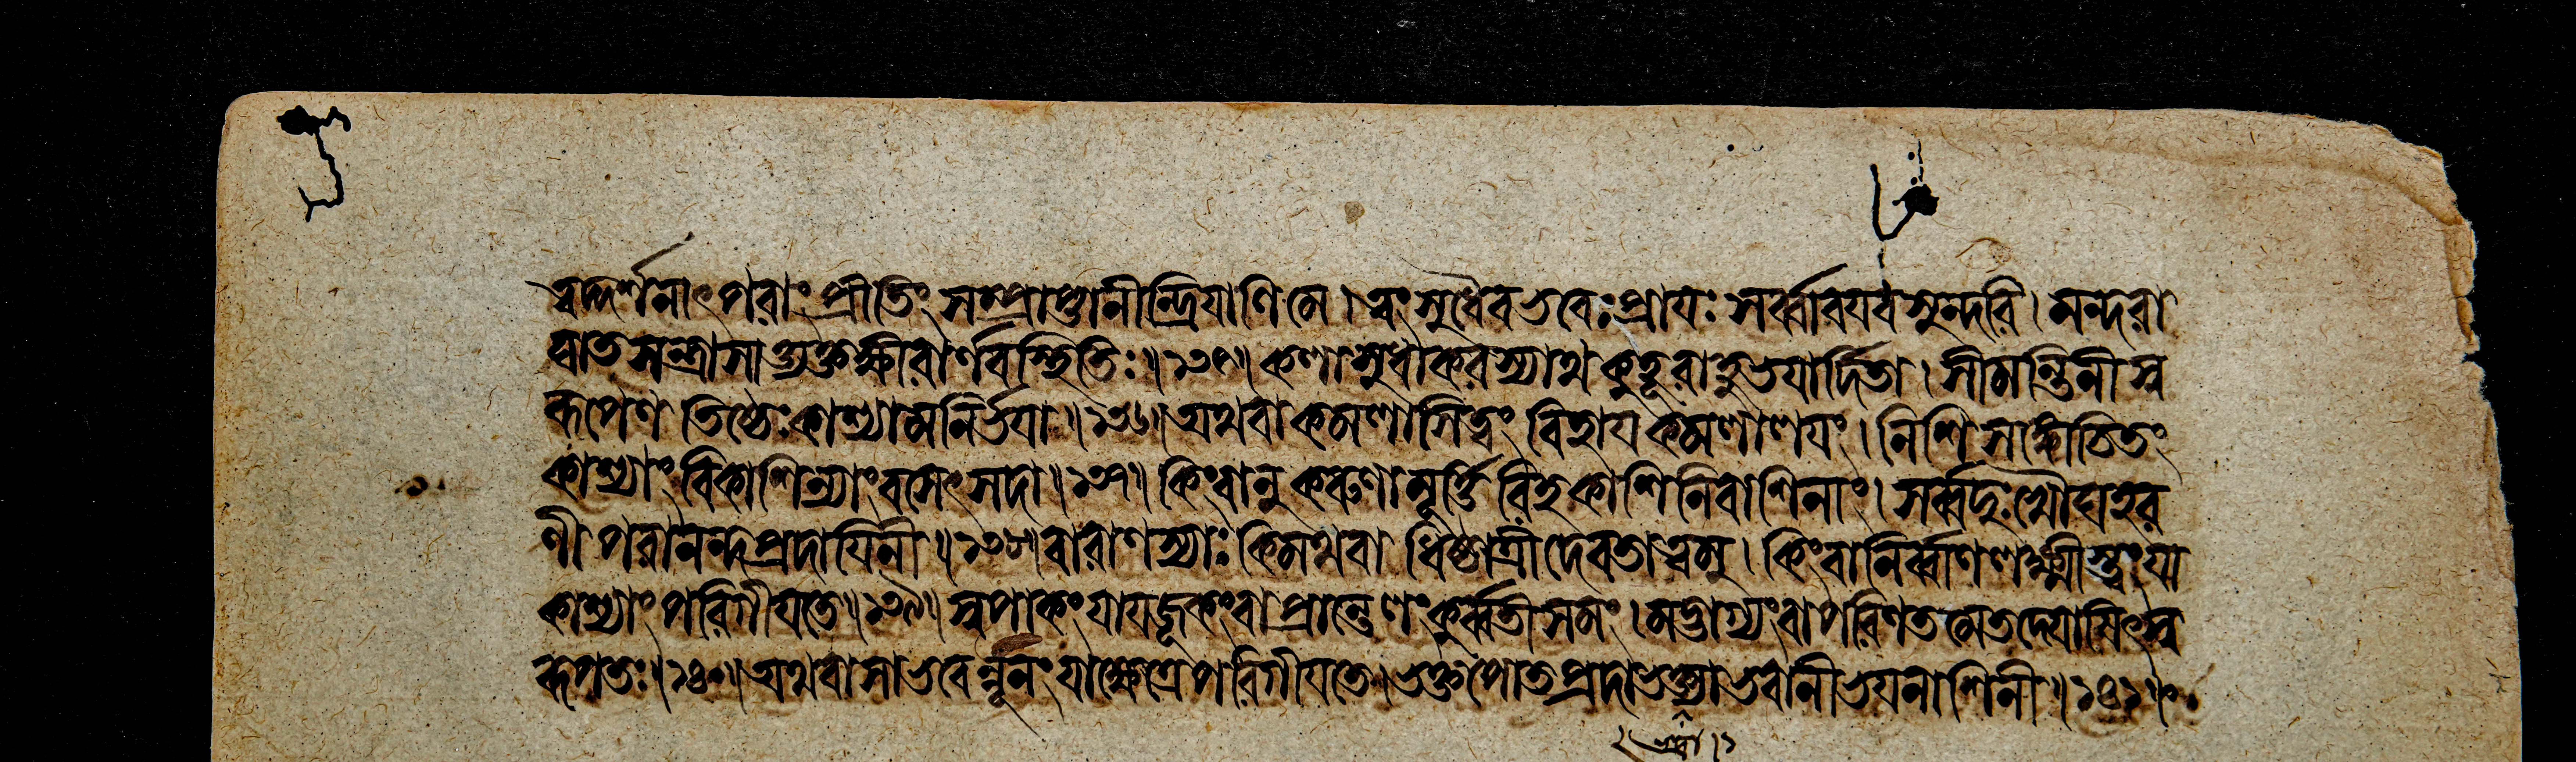 ত্বদ্দর্শনাৎ পরাং প্রীতিং সম্প্রাপ্তানীন্দ্রিয়াণি মে । ত্বং সুধৈব ভবেঃ প্রায়ঃ সর্ব্বাবয়ব সুন্দরি । মন্দরা
ঘাত সন্ত্রাসাত্ত্যক্তক্ষীরার্ণবস্থিতিঃ ॥ ১৩৫ ॥ কলা সুধাকরস্যাথ কুহূরাহুভয়ার্দিতা । সীমন্তিনী স্ব
রূপেণ তিষ্ঠেঃ কাশ্যামনির্ভয়া ॥ ১৩৬ ॥ অথবা কমলাসি ত্বং বিহায় কমলালয়ং । নিশি সঙ্কোচিতং
কাশ্যাং বিকাশিন্যাং বসেৎ সদা ॥ ১৩৭ ॥ কিংবানু করুণামূর্ত্তিরিহ কাশিনিবাশিনাং । সর্ব্বদুঃখৌঘহর
ণী পরানন্দপ্রদায়িনী ॥ ১৩৮ ॥ বারাণস্যাঃ কিমথবা ধিষ্ঠাত্রী দেবতা ত্বমু । কিংবা নির্ব্বাণলক্ষ্মীস্ত্বং যা
কাশ্যাং পরিগীয়তে ॥ ১৩৯ ॥ স্বপাকং যায়জূকং বা প্রান্তে লং কুর্ব্বতী সমং । মদ্ভাগ্যং বা পরিণতমেতদ্দেয়াষিৎ স্ব
রূপতঃ ॥ ১৪০ ॥ অথবা সা ভবেন্নূনং যা ক্ষেত্রে পরিগীয়তে । ভক্তপোতপ্রদা ভক্ত্যা ভবানী ভয়নাশিনী ॥ ১৪১ ॥